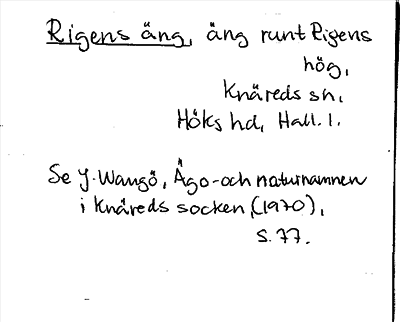 Rigens äng, äng runt Rigens
hög,
Knäreds sn,
Höks hd, Hall. l.
Se J. Wangö, Ägo- och naturnamnen
i Knäreds socken, (1970),
s. 77.